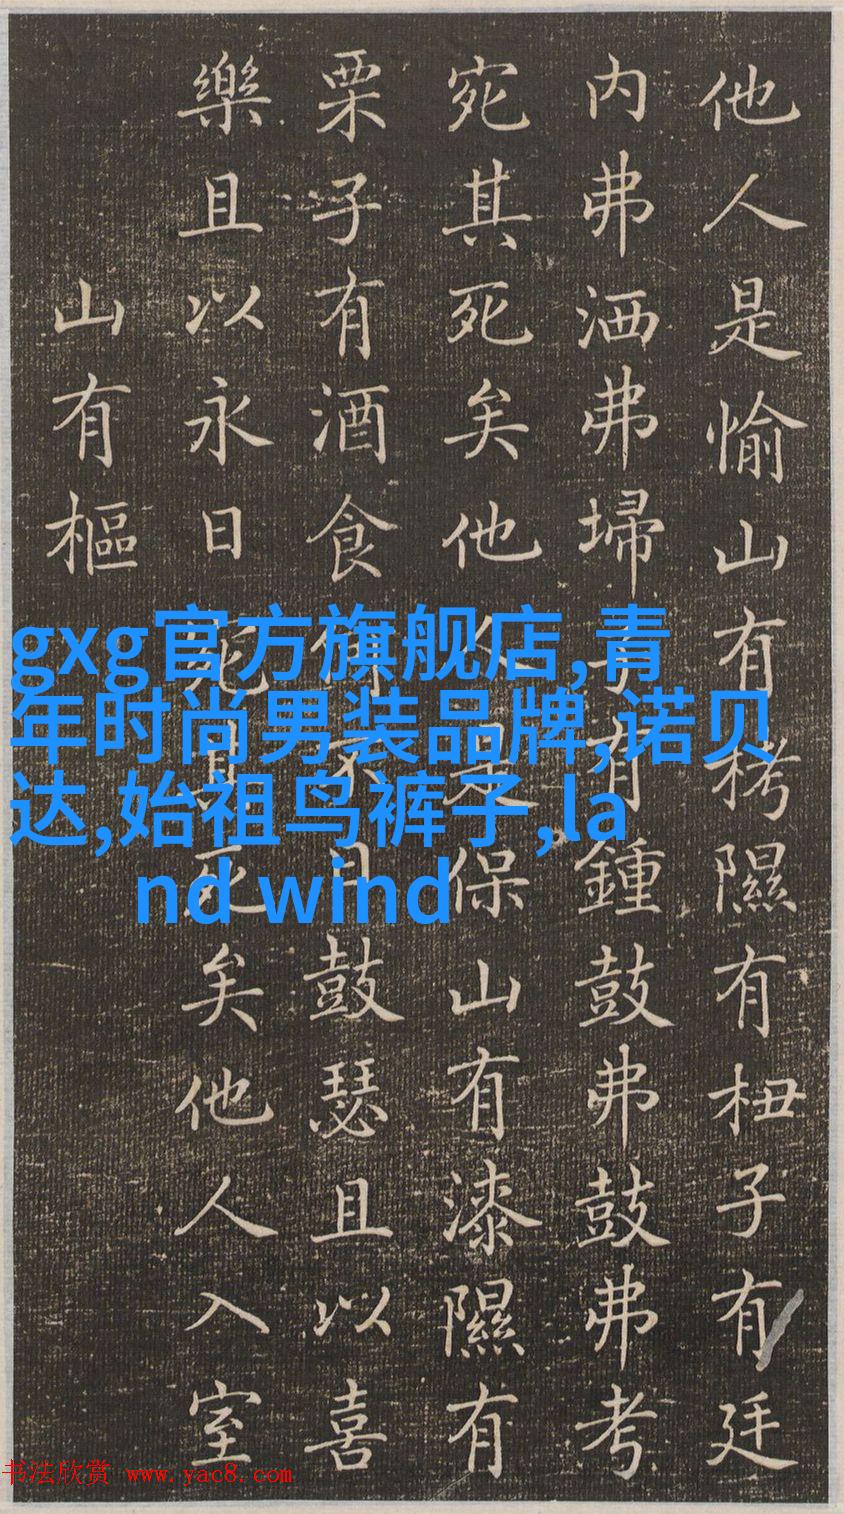 他人是愉山有栲隰有杻子有廷
内弗洒弗埽子有鍾鼓弗鼓弗考
宛其死矣他人是保山有漆隰有
栗子有酒食何不日鼓瑟且以喜
樂且以永日宛其死矣他人入室
山有樞
gxg官方旗舰店,青
年时尚男装品牌,诺贝
达,始祖鸟裤子,la
nd wind
书法欣赏 www.yac8.com